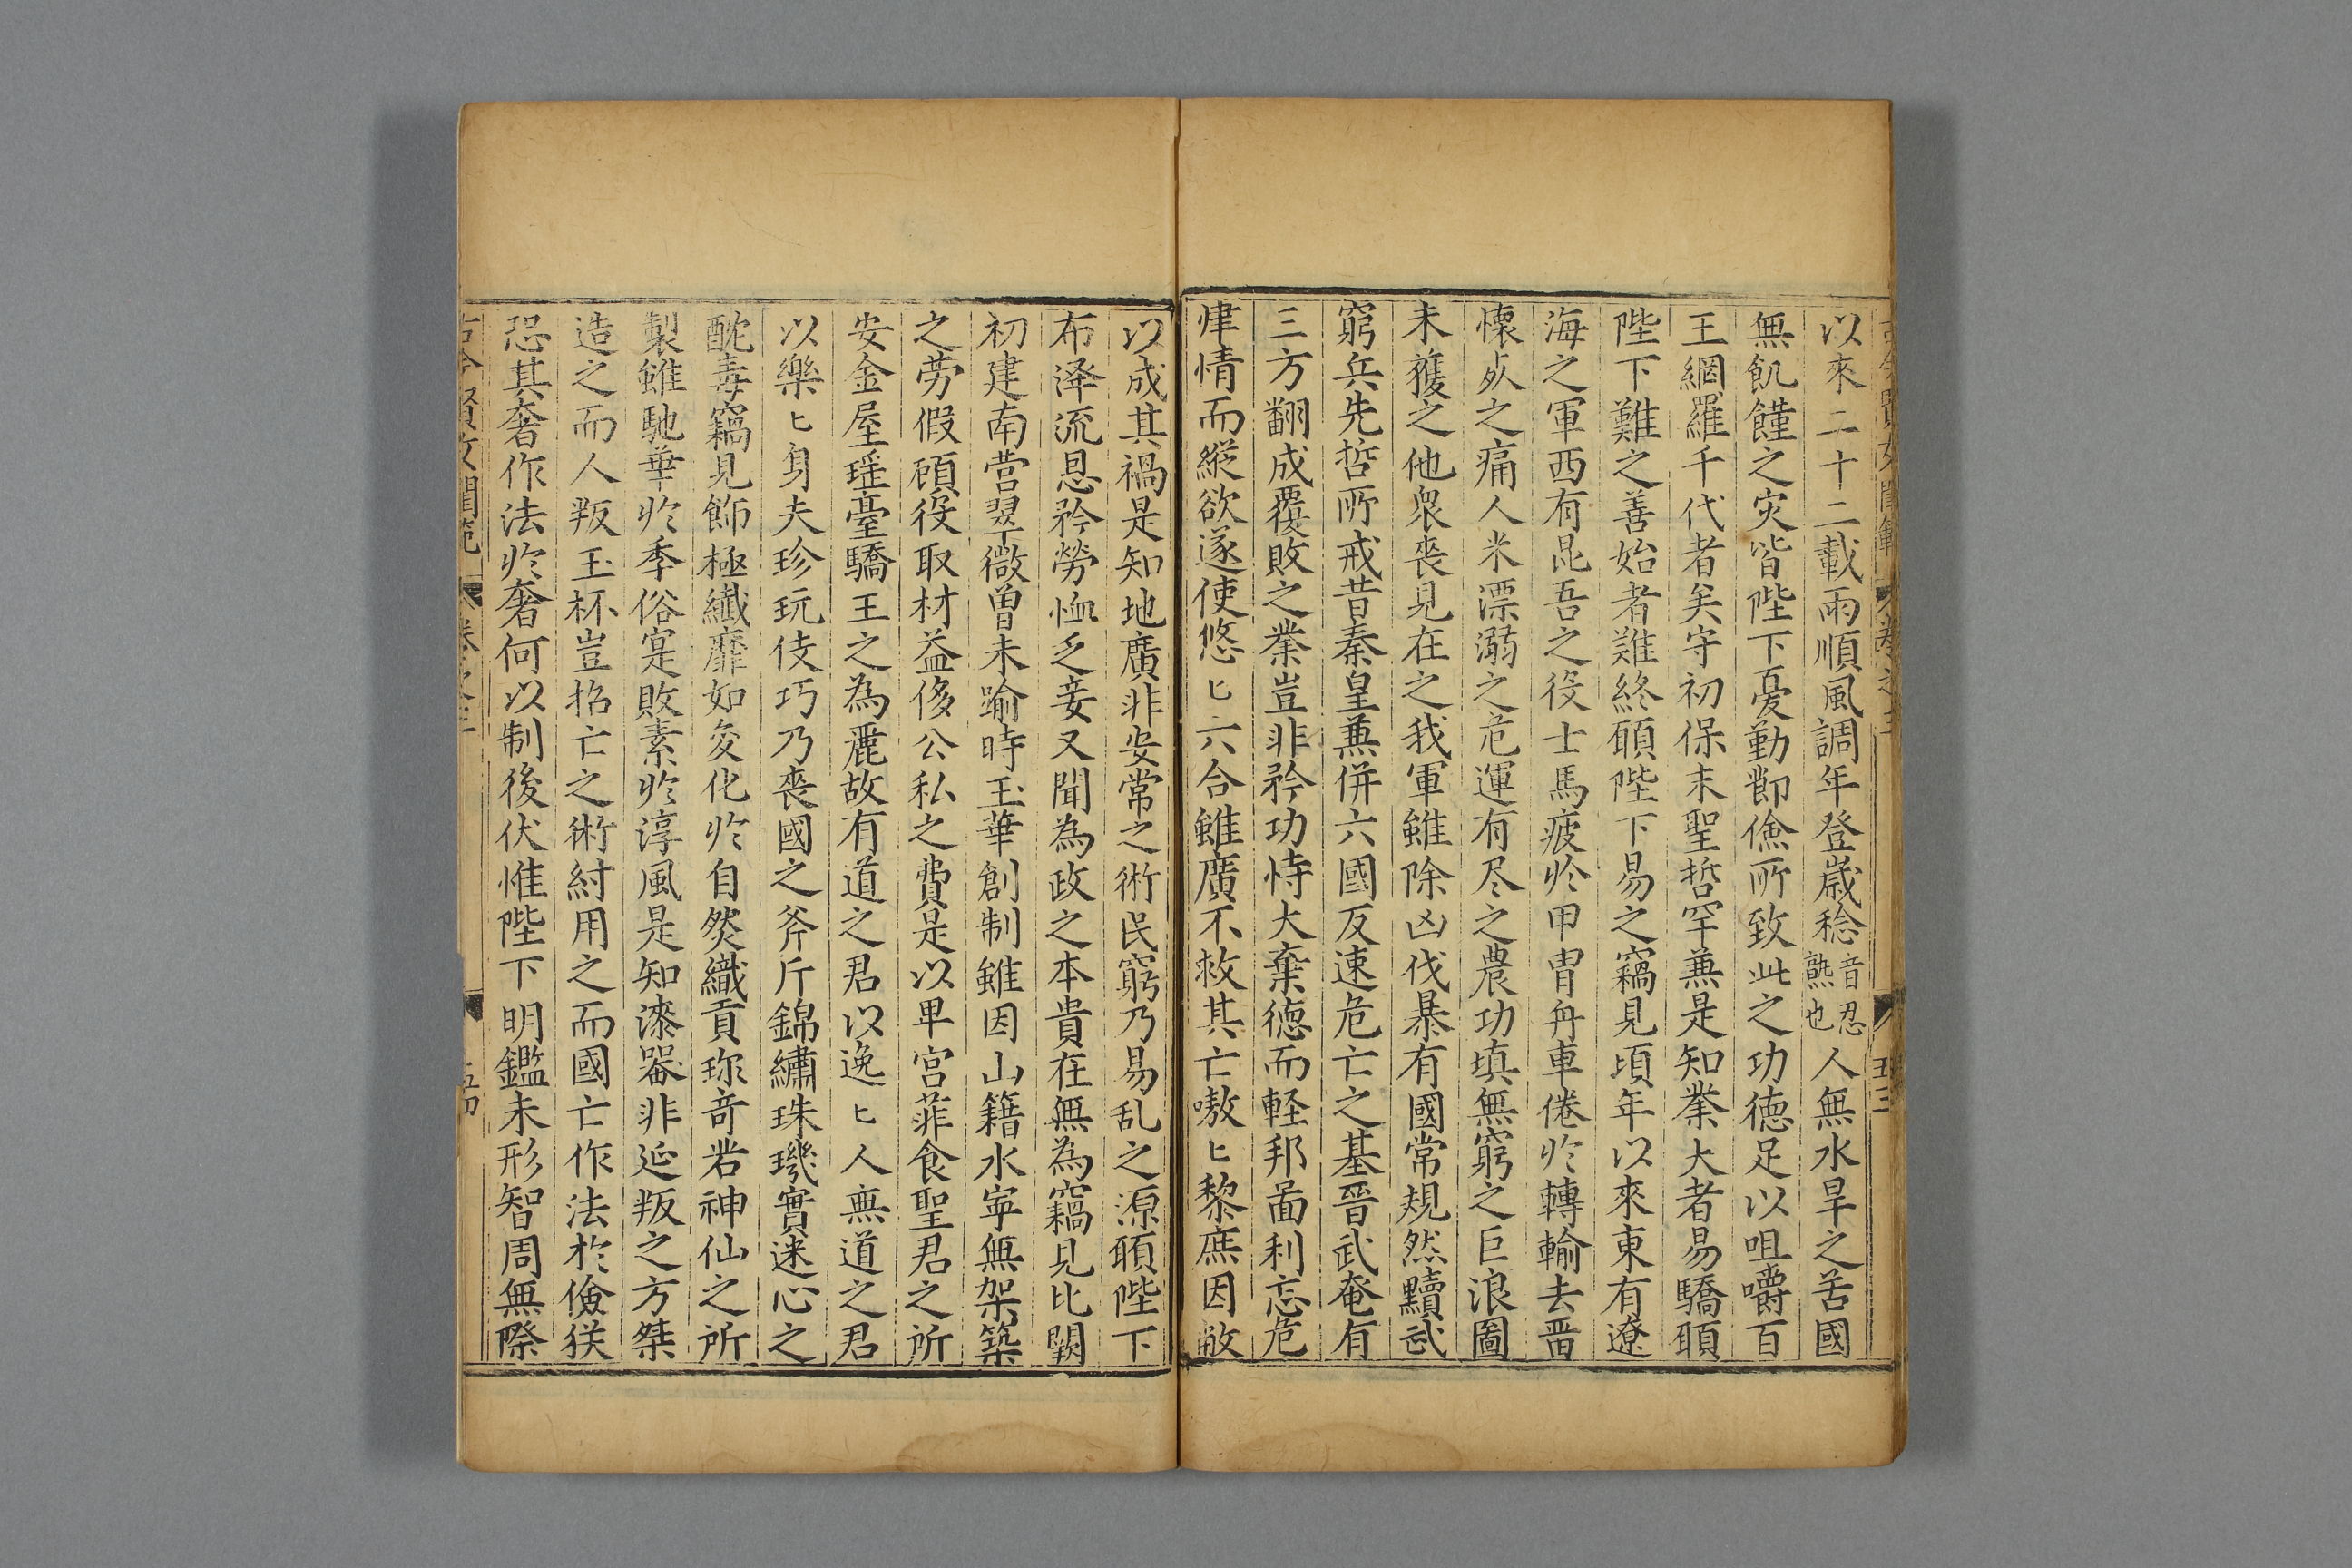 以來二十二載雨順風調年登歲稔音忍熟也人無水旱之苦國
無飢饉之灾皆陛下憂勤節儉所致此之功德足以咀嚼百
王網羅千代者矣守初保末聖哲罕兼是知業大者易驕願
陛下難之善始者難終願陛下易之竊見頃年以來東有遼
海之軍西有昆吾之役士馬疲於甲冑舟車倦於轉輸去畱
懷死之痛人米漂溺之危運有尽之農功填無窮之巨浪圖
未獲之他衆喪見在之我軍雖除凶伐暴有國常規然黷武
窮兵先哲所戒昔秦皇兼併六國反速危亡之基晉武奄有
三方翻成覆敗之業豈非矜功恃大棄德而輕邦啚利忘危
肆情而縱欲遂使悠匕六合雖廣不救其亡嗷匕黎庶因敝
以成其禍是知地廣非安常之術民窮乃易乱之源願陛下
布泽流恩矜勞恤乏妾又聞為政之本貴在無為竊見比闕
初建南营翠微曾未踰時玉華創制雖因山籍水寕無架築
之劳假顧役取材益侈公私之費是以卑宫菲食聖君之所
安金屋瑶臺驕王之為麗故有道之君以逸匕人無道之君
以樂匕身夫珍玩伎巧乃喪國之斧斤錦繡珠璣實迷心之
酖毒竊見飾極纖靡如变化於自然織貢珎竒若神仙之所
製雖馳華於季俗寔敗素於淳風是知漆器非延叛之方桀
造之而人叛玉杯豈招亡之術紂用之而國亡作法於儉猶
恐其奢作法於奢何以制後伏惟陛下明鑑未形智周無際